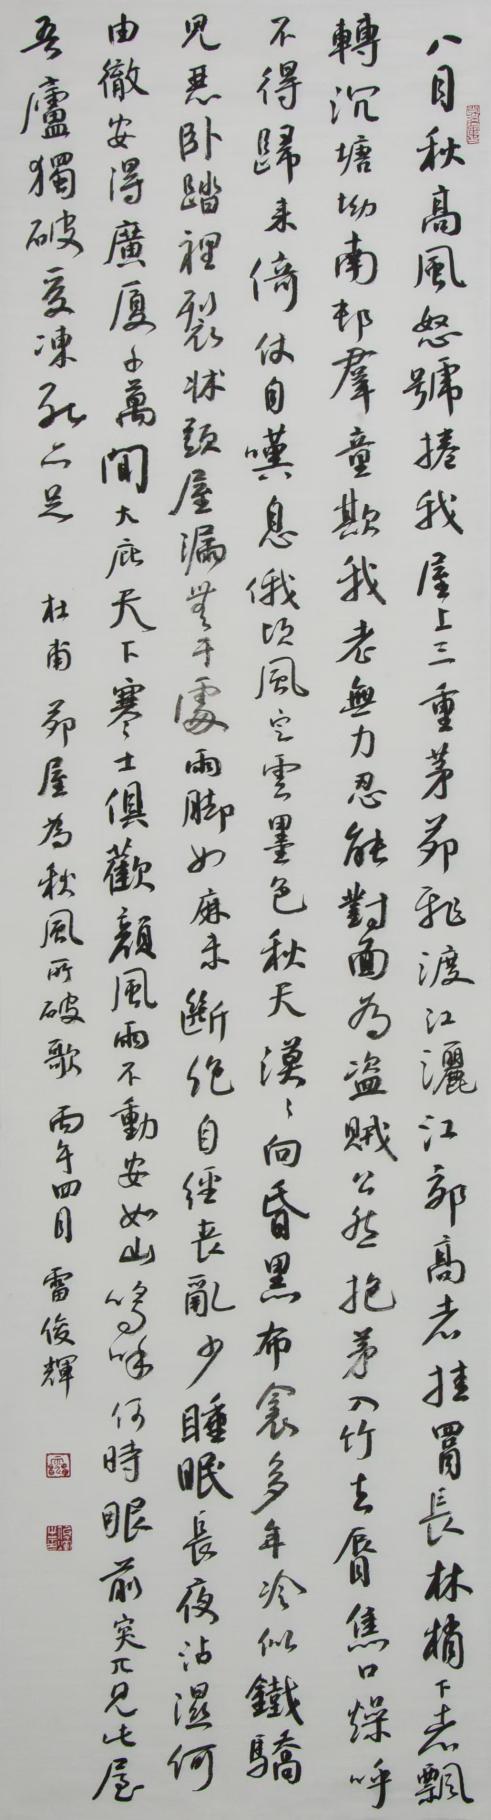 八月秋高風怒號捲我屋上三重茅茆飛渡江灑江郊高者挂罥長林梢下者飄
轉沉塘坳南邨羣童欺我老無力忍能對面為盜賊公然抱茅入竹去脣焦口燥呼
不得歸来倚仗自嘆息俄頃風定雲墨色秋天漠〻向昏黑布衾多年冷似鐵驕
児惡卧踏裡裂牀頭屋漏無干處雨脚如麻未斷絶自經喪亂少睡眠長夜沾濕何
由徹安得廣厦千萬間大庇天下寒士俱歡顔風雨不動安如山嗚呼何時眼前突兀見此屋
吾廬獨破受凍死亦足
杜甫 茆屋為秋風所破歌 丙午四月 雷俊輝